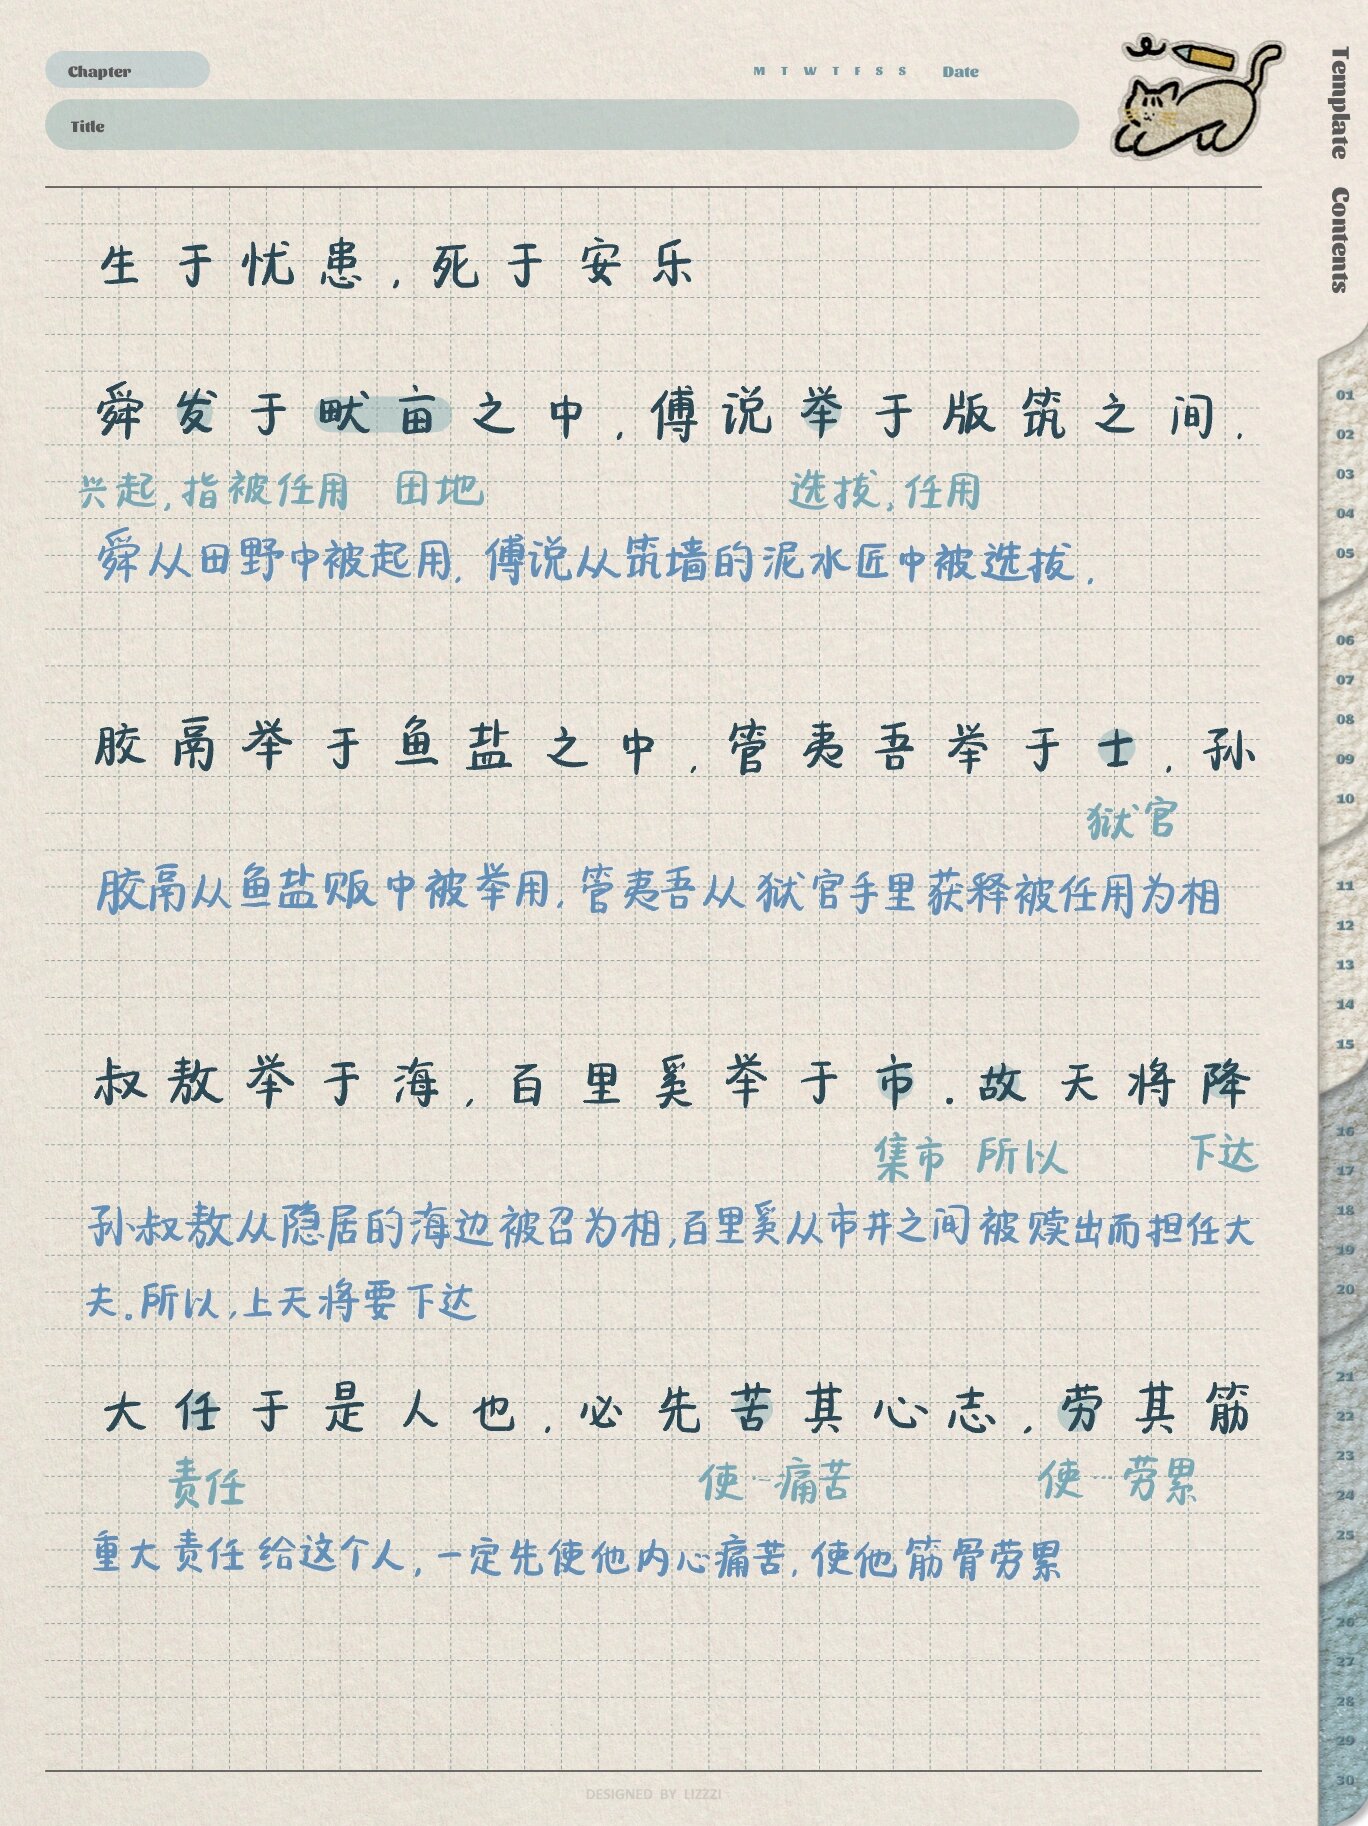 Chapter
M T W T F S S Date
Title
Template Contents
生于忧患,死于安乐
舜发于畎亩之中,傅说举于版筑之间.
兴起,指被任用 田地 选拔,任用
舜从田野中被起用,傅说从筑墙的泥水匠中被选拔.
胶鬲举于鱼盐之中,管夷吾举于士,孙
狱官
胶鬲从鱼盐贩中被举用,管夷吾从狱官手里获释被任用为相
叔敖举于海,百里奚举于市.故天将降
集市 所以 下达
孙叔敖从隐居的海边被召为相,百里奚从市井之间被赎出而担任大
夫。所以,上天将要下达
大任于是人也,必先苦其心志,劳其筋
责任 使…痛苦 使…劳累
重大责任给这个人,一定先使他内心痛苦,使他筋骨劳累
01
02
03
04
05
06
07
08
09
10
11
12
13
14
15
16
17
18
19
20
21
22
23
24
25
26
27
28
29
30
DESIGNED BY LIZZZI